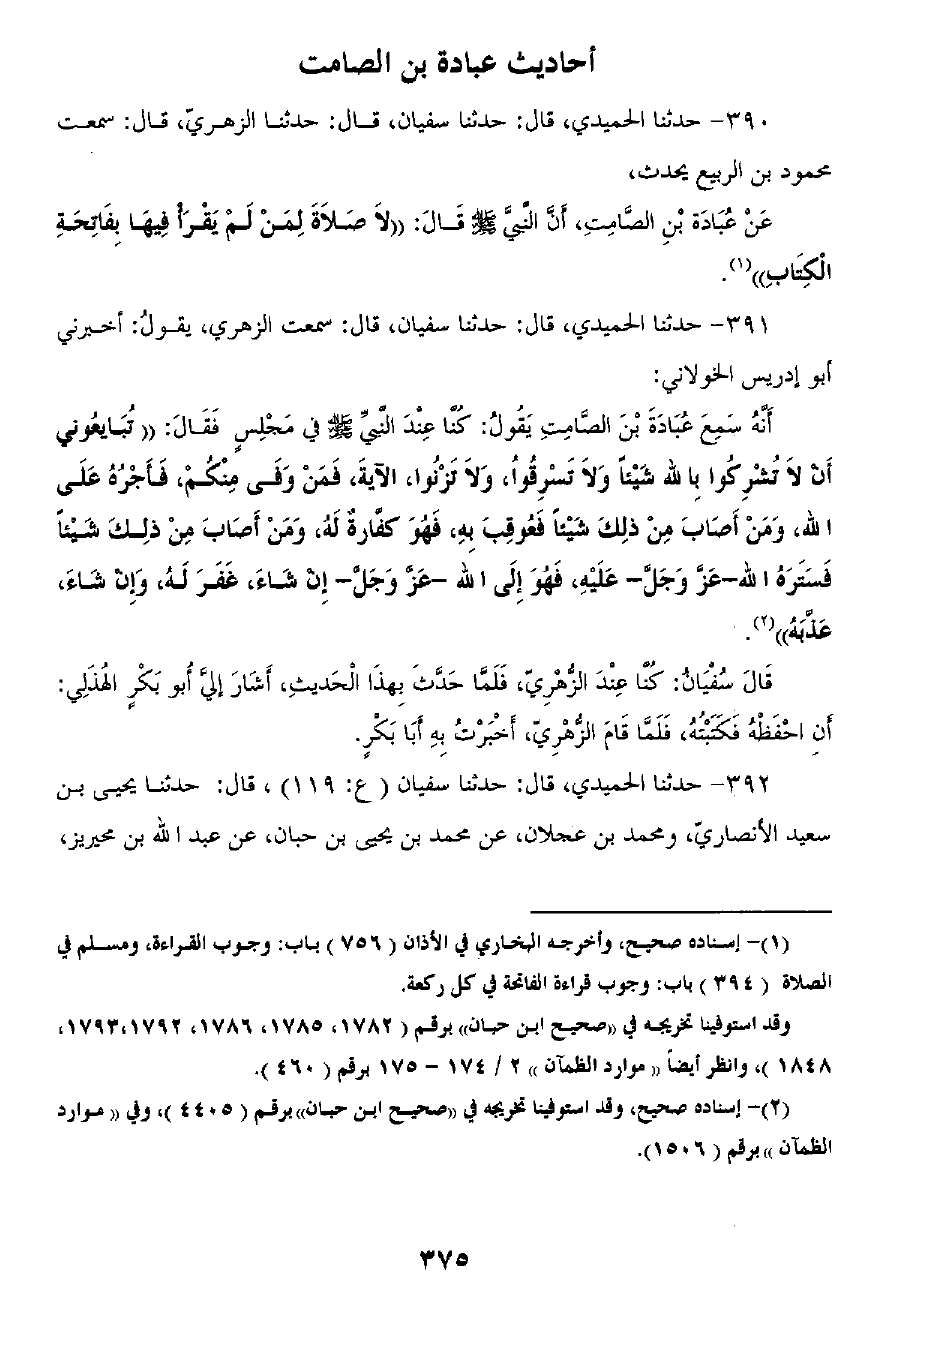 أحاديث عبادة بن الصامت
٣٩٠- حدثنا الحميدي، قال: حدثنا سفيان، قـال: حدثنـا الزهـريّ، قـال: سمعـت
محمود بن الربيع يحدث،
عَنْ عُبَادَة بْنِ الصَّامِتِ، أَنَّ النَّبِيَّ ﷺ قَـالَ: ((لاَ صَـلاَةَ لِمَـنْ لَـمْ يَقْـرَأْ فِيهَـا بِفَاتِحَـةِ
الْكِتَابِ))(١).
٣٩١- حدثنا الحميدي، قال: حدثنا سفيان، قال: سمعت الزهري، يقـولُ: أخـبرني
أبو إدريس الخولاني:
أَنَّهُ سَمِعَ عُبَادَةَ بْنَ الصَّامِتِ يَقُولُ: كُنَّا عِنْدَ النَّبِيِّ ﷺ فِي مَجْلِسٍ فَقَـالَ: (( تُبَـايعُوني
أَنْ لاَ تُشْرِكُوا بِا لله شَيْئاً وَلاَ تَسْرِقُوا، وَلاَ تَزْنُوا، الآيةَ، فَمَنْ وَفَـى مِنْكُـمْ، فَـأَجْرُهُ عَلَـى
ا لله، وَمَنْ أَصَابَ مِنْ ذلِكَ شَيْئاً فَعُوقِبَ بِهِ، فَهُوَ كفَّارةٌ لَهُ، وَمَنْ أَصَابَ مِنْ ذلِـكَ شَـيْئاً
فَسَتَرَهُ ا لله-عَزَّ وَجَلَّ- عَلَيْهِ، فَهُوَ إِلَى ا لله -عَزَّ وَجَلَّ- إِنْ شَـاءَ، غَفَـرَ لَـهُ، وَإِنْ شَـاءَ،
عَذَّبَهُ))(٢).
قَالَ سُفْيَانُ: كُنَّا عِنْدَ الزُّهْرِيّ، فَلَمَّا حَدَّثَ بِهذَا الْحَديثِ، أَشَارَ إِلَيَّ أَبُو بَكْرٍ الهُذَلِي:
أَنِ احْفَظْهُ فَكَتَبْتُهُ، فَلَمَّا قَامَ الزُّهْرِيّ، أَخْبَرْتُ بِهِ أَبَا بَكْرٍ.
٣٩٢- حدثنا الحميدي، قال: حدثنا سفيان ( ع: ١١٩) ، قال: حدثنـا يحيـى بـن
سعيد الأنصاريّ، ومحمد بن عجلان، عن محمد بن يحيى بن حبان، عن عبد ا لله بن محيريز،
(١)- إسناده صحيح، وأخرجه البخاري في الأذان ( ٧٥٦ ) بـاب: وجـوب القـراءة، ومسـلم في
الصلاة ( ٣٩٤ ) باب: وجوب قراءة الفاتحة في كل ركعة.
وقد استوفينا تخريجـه في ((صحيـح ابـن حبـان)) برقـم ( ١٧٨٢، ١٧٨٥، ١٧٨٦، ١٧٩٢،١٧٩٣،
١٨٤٨ )، وانظر أيضاً (( موارد الظمآن )) ٢ / ١٧٤ - ١٧٥ برقم ( ٤٦٠ ).
(٢)- إسناده صحيح، وقد استوفينا تخريجه في ((صحيـح ابـن حبـان))برقـم ( ٤٤٠٥ )، وفي (( مـوارد
الظمآن ))برقم ( ١٥٠٦).
٣٧٥